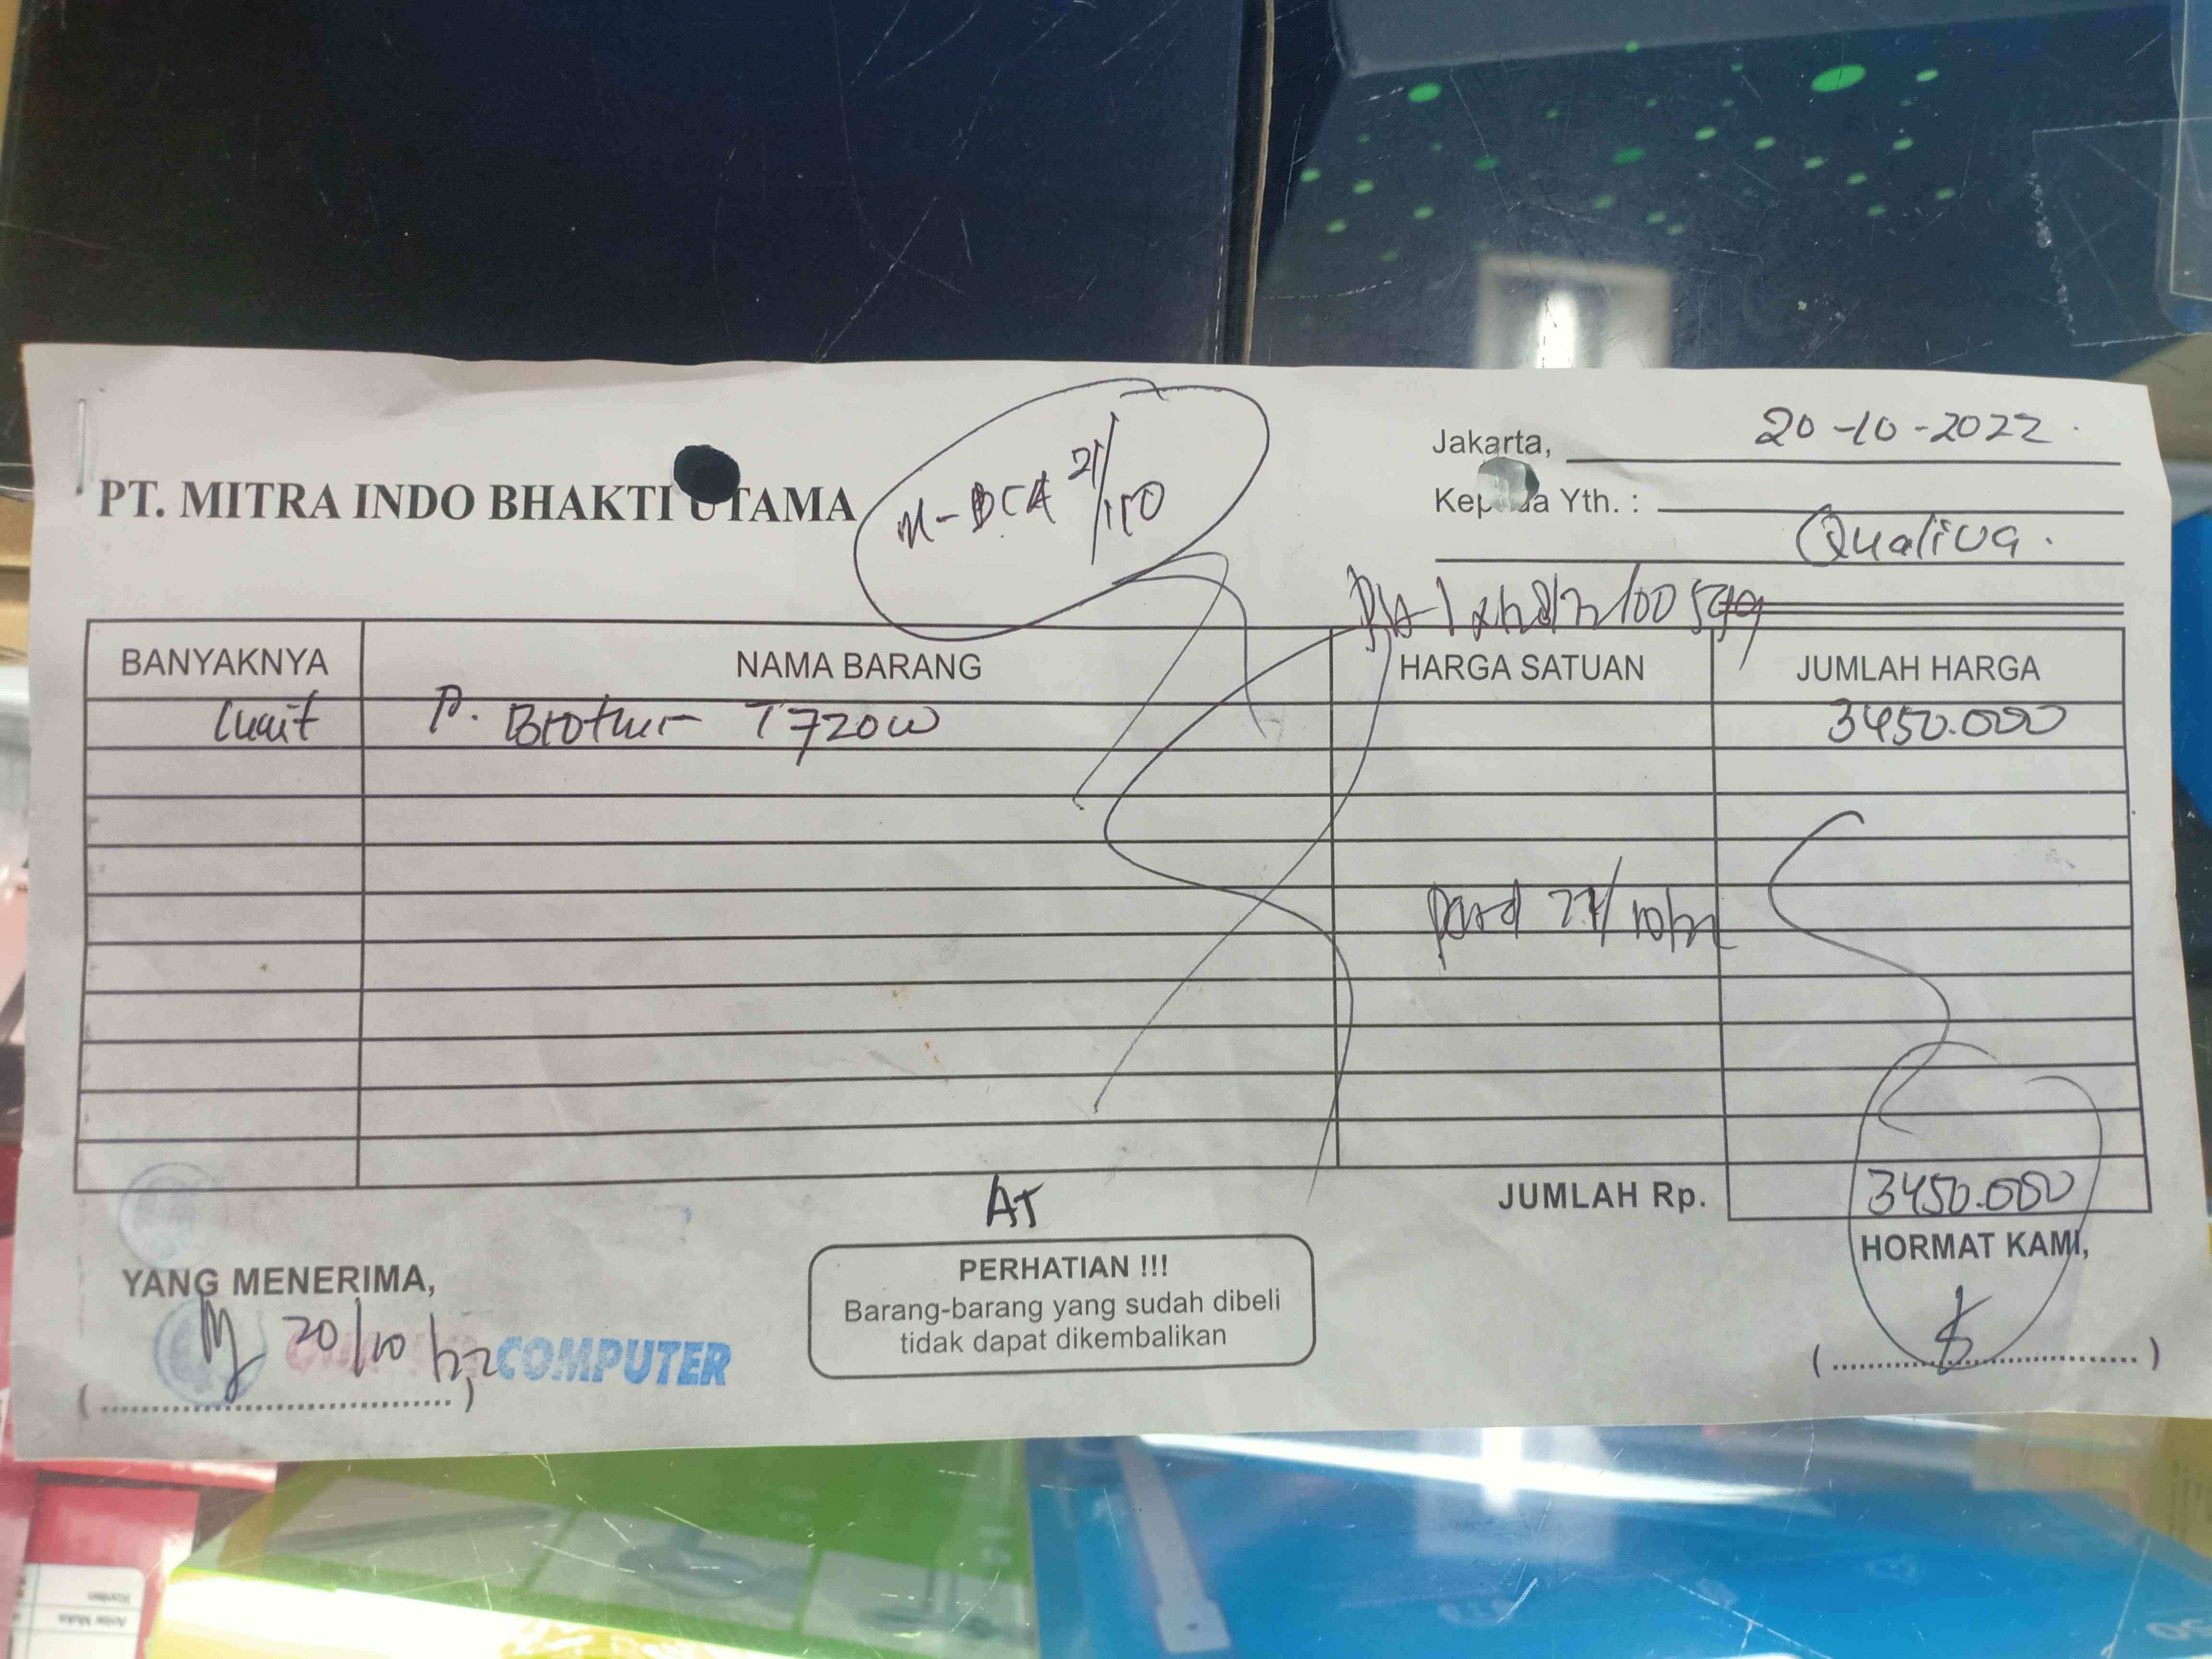 Jakarta, 20-10-2022
PT. MITRA INDO BHAKTI UTAMA
M-BCA 21/
Kepada Yth. :
Qualiva.
BANYAKNYA NAMA BARANG HARGA SATUAN JUMLAH HARGA
1unit P. Brother T720W 3450.000
AT
JUMLAH Rp. 3450.000
YANG MENERIMA,
PERHATIAN !!!
Barang-barang yang sudah dibeli
tidak dapat dikembalikan
HORMAT KAMI,
20/10/22
COMPUTER